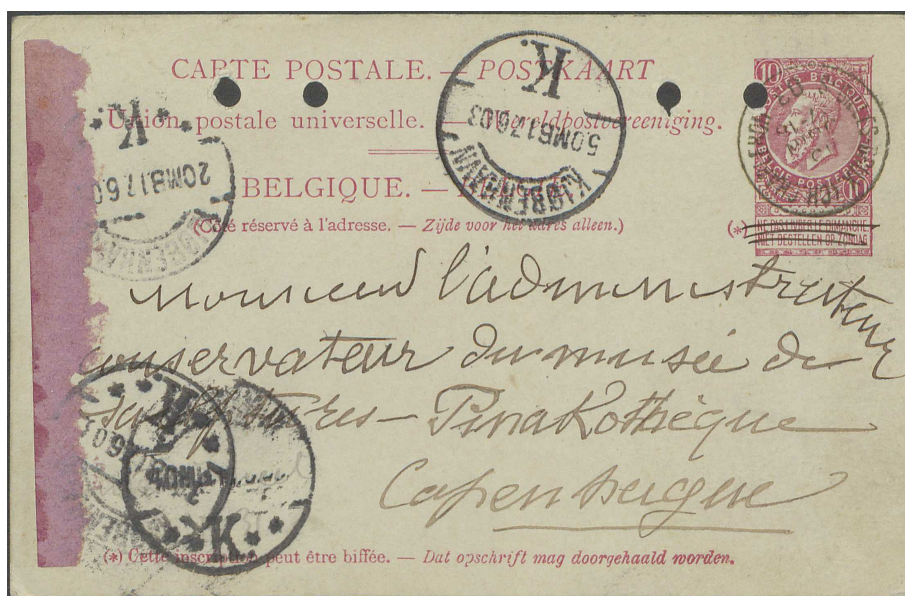 CARTE POSTALE. — POSTKAART
Union postale universelle. — Wereldpostvereeniging.
BELGIQUE. —
(Côté réservé à l'adresse. — Zijde voor het adres alleen.)
(*)
10
NE PAS LIVRER LE DIMANCHE
NIET BESTELLEN OP ZONDAG
K
KJØBENHAVN
5.0MB17.6.03
K
2.0MB17.6.0
Monsieur l'administrateur
conservateur du musée de
sculptures — Pinakothèque
Copenhague
K
(*) Cette inscription peut être biffée. — Dat opschrift mag doorgehaald worden.